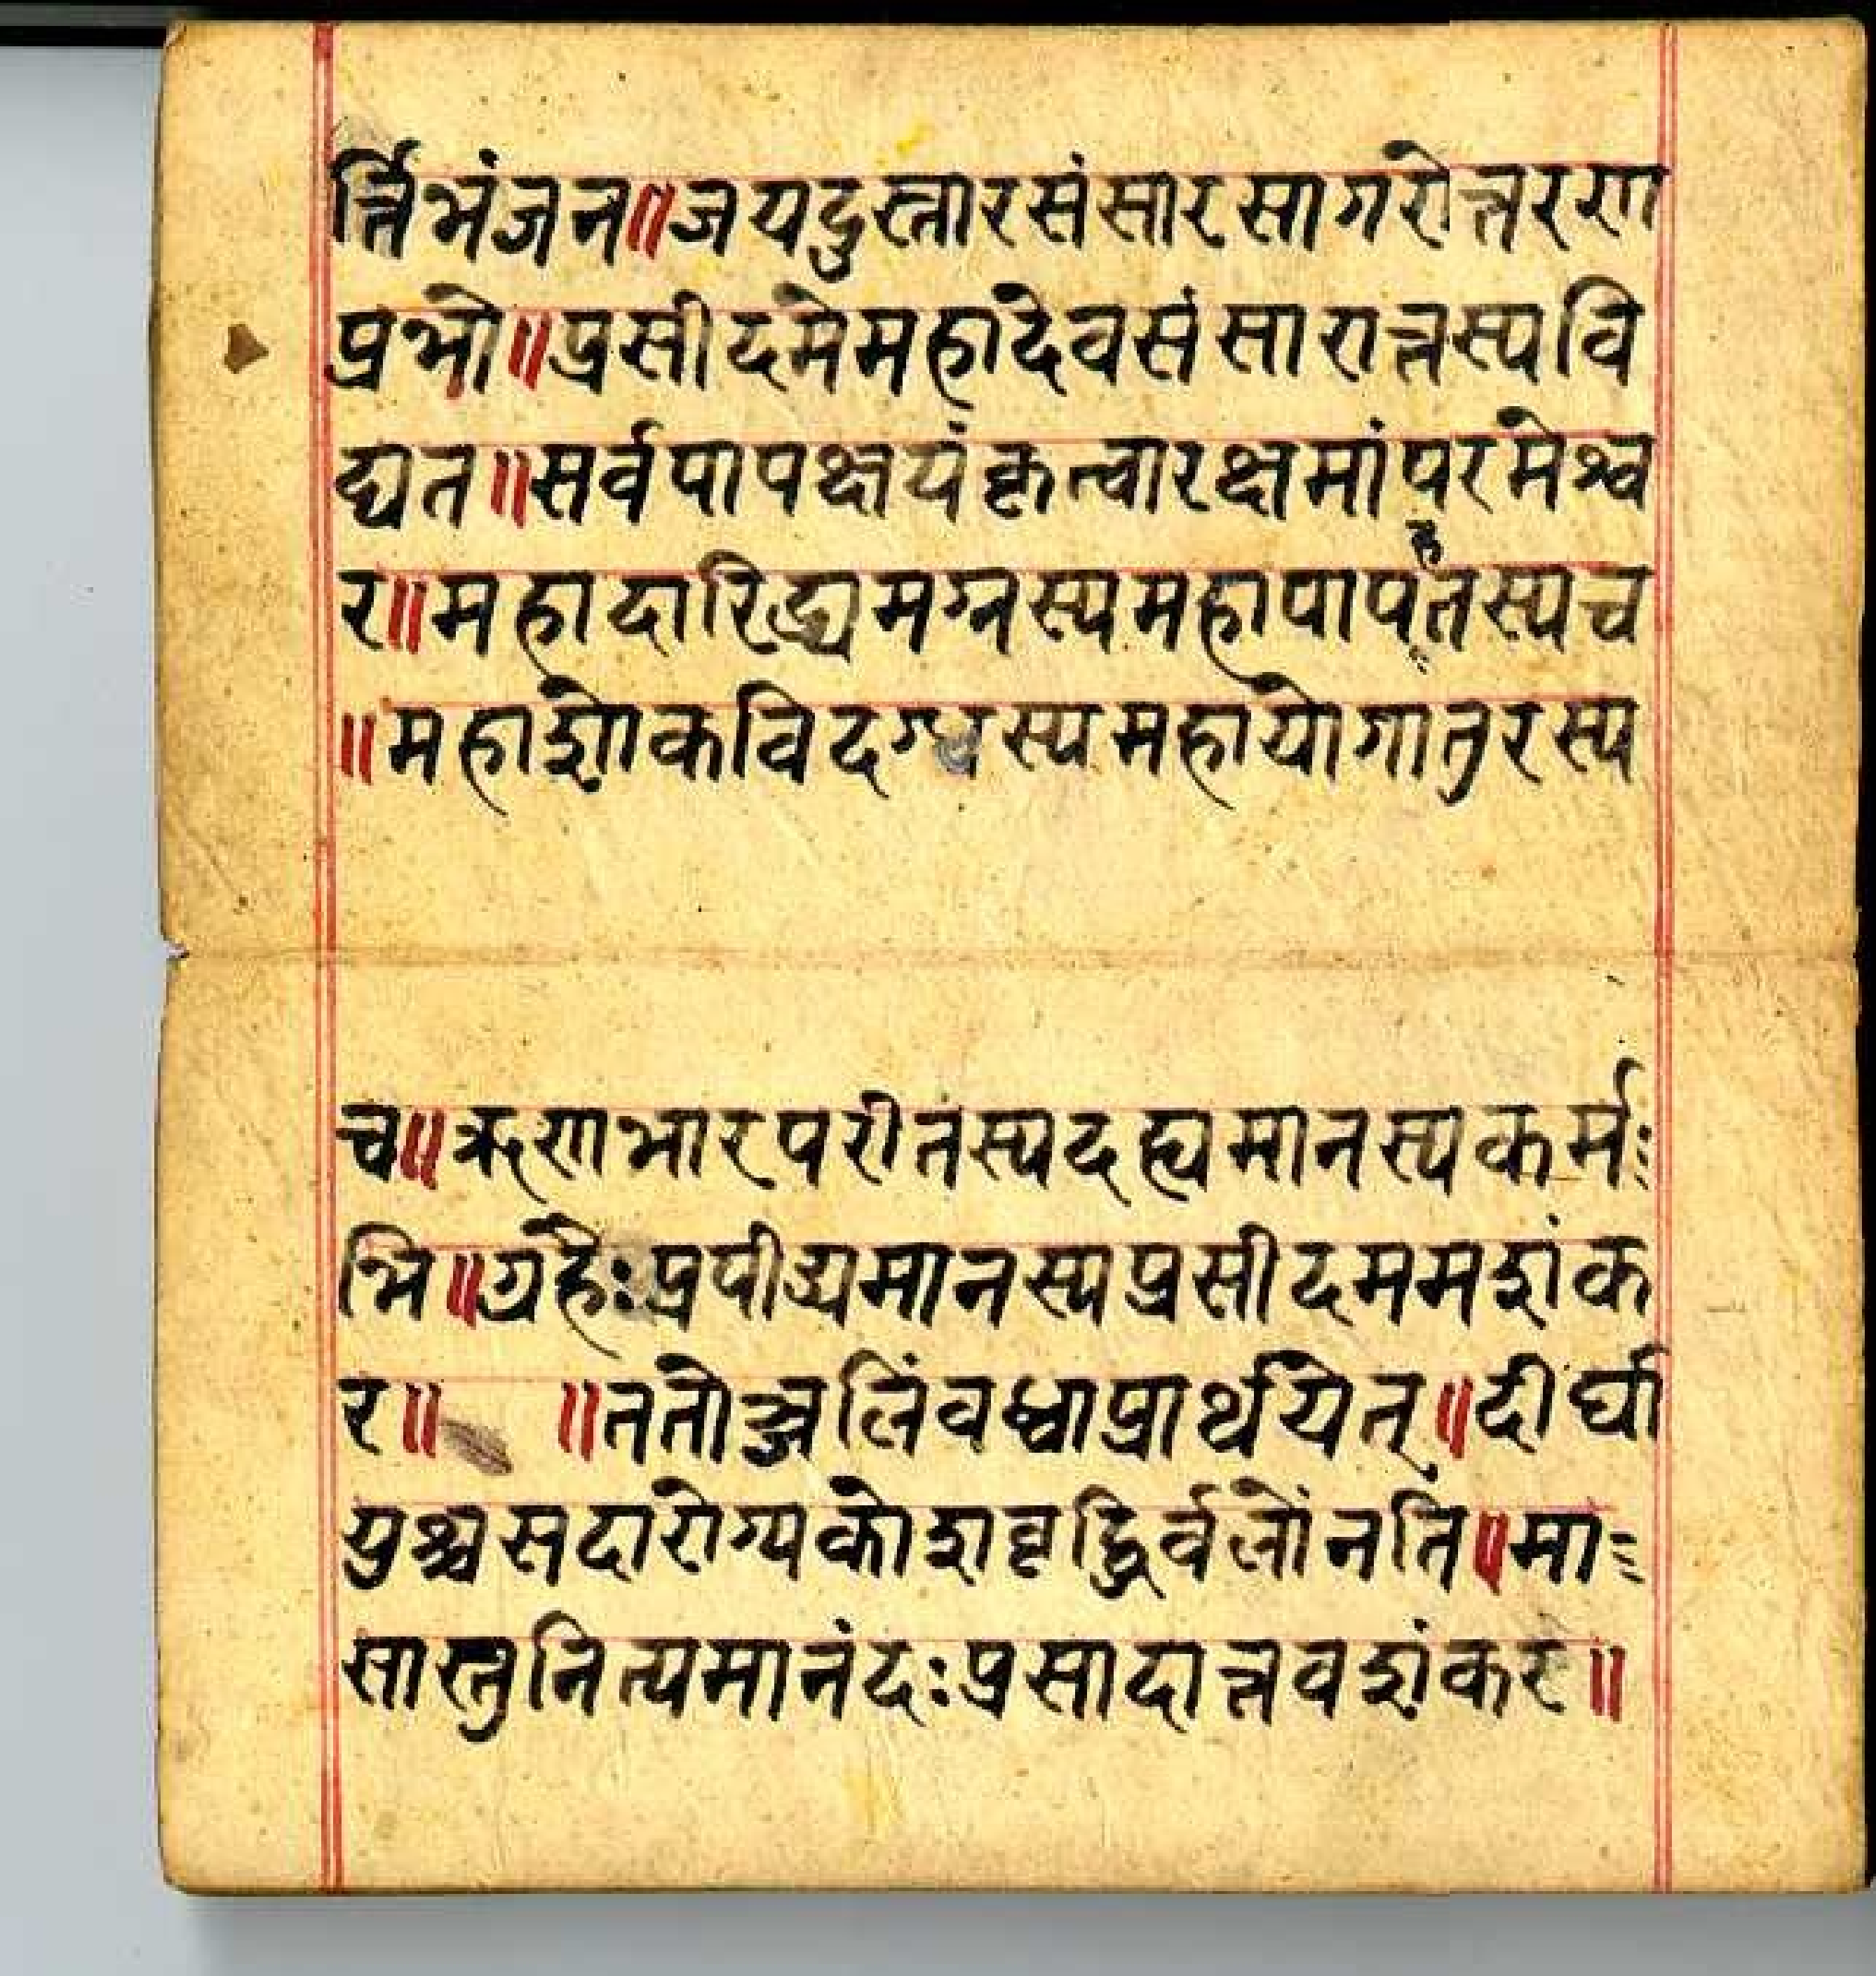 र्त्तिभंजन॥जयदुस्तारसंसारसागरोत्तरण
प्रभो॥प्रसीदमेमहादेवसंसारात्तस्यवि
द्यत॥सर्वपापक्षयंकृत्वारक्षमांपरमेश्व
र॥महादारिद्र्यमग्नस्यमहापापहतस्यच
॥महाशोकविदग्धस्यमहायोगातुरस्य
च॥ऋणभारपरीतस्यदह्यमानस्यकर्म
भि॥ग्रहैःप्रपीड्यमानस्यप्रसीदममशंक
र॥ ॥ततोञ्जलिंवध्वाप्रार्थयेत्॥दीर्घा
युश्चसदारोग्यकोशवृद्धिर्वलोंनति॥मा
सास्तुनित्यमानंदःप्रसादात्तवशंकर॥